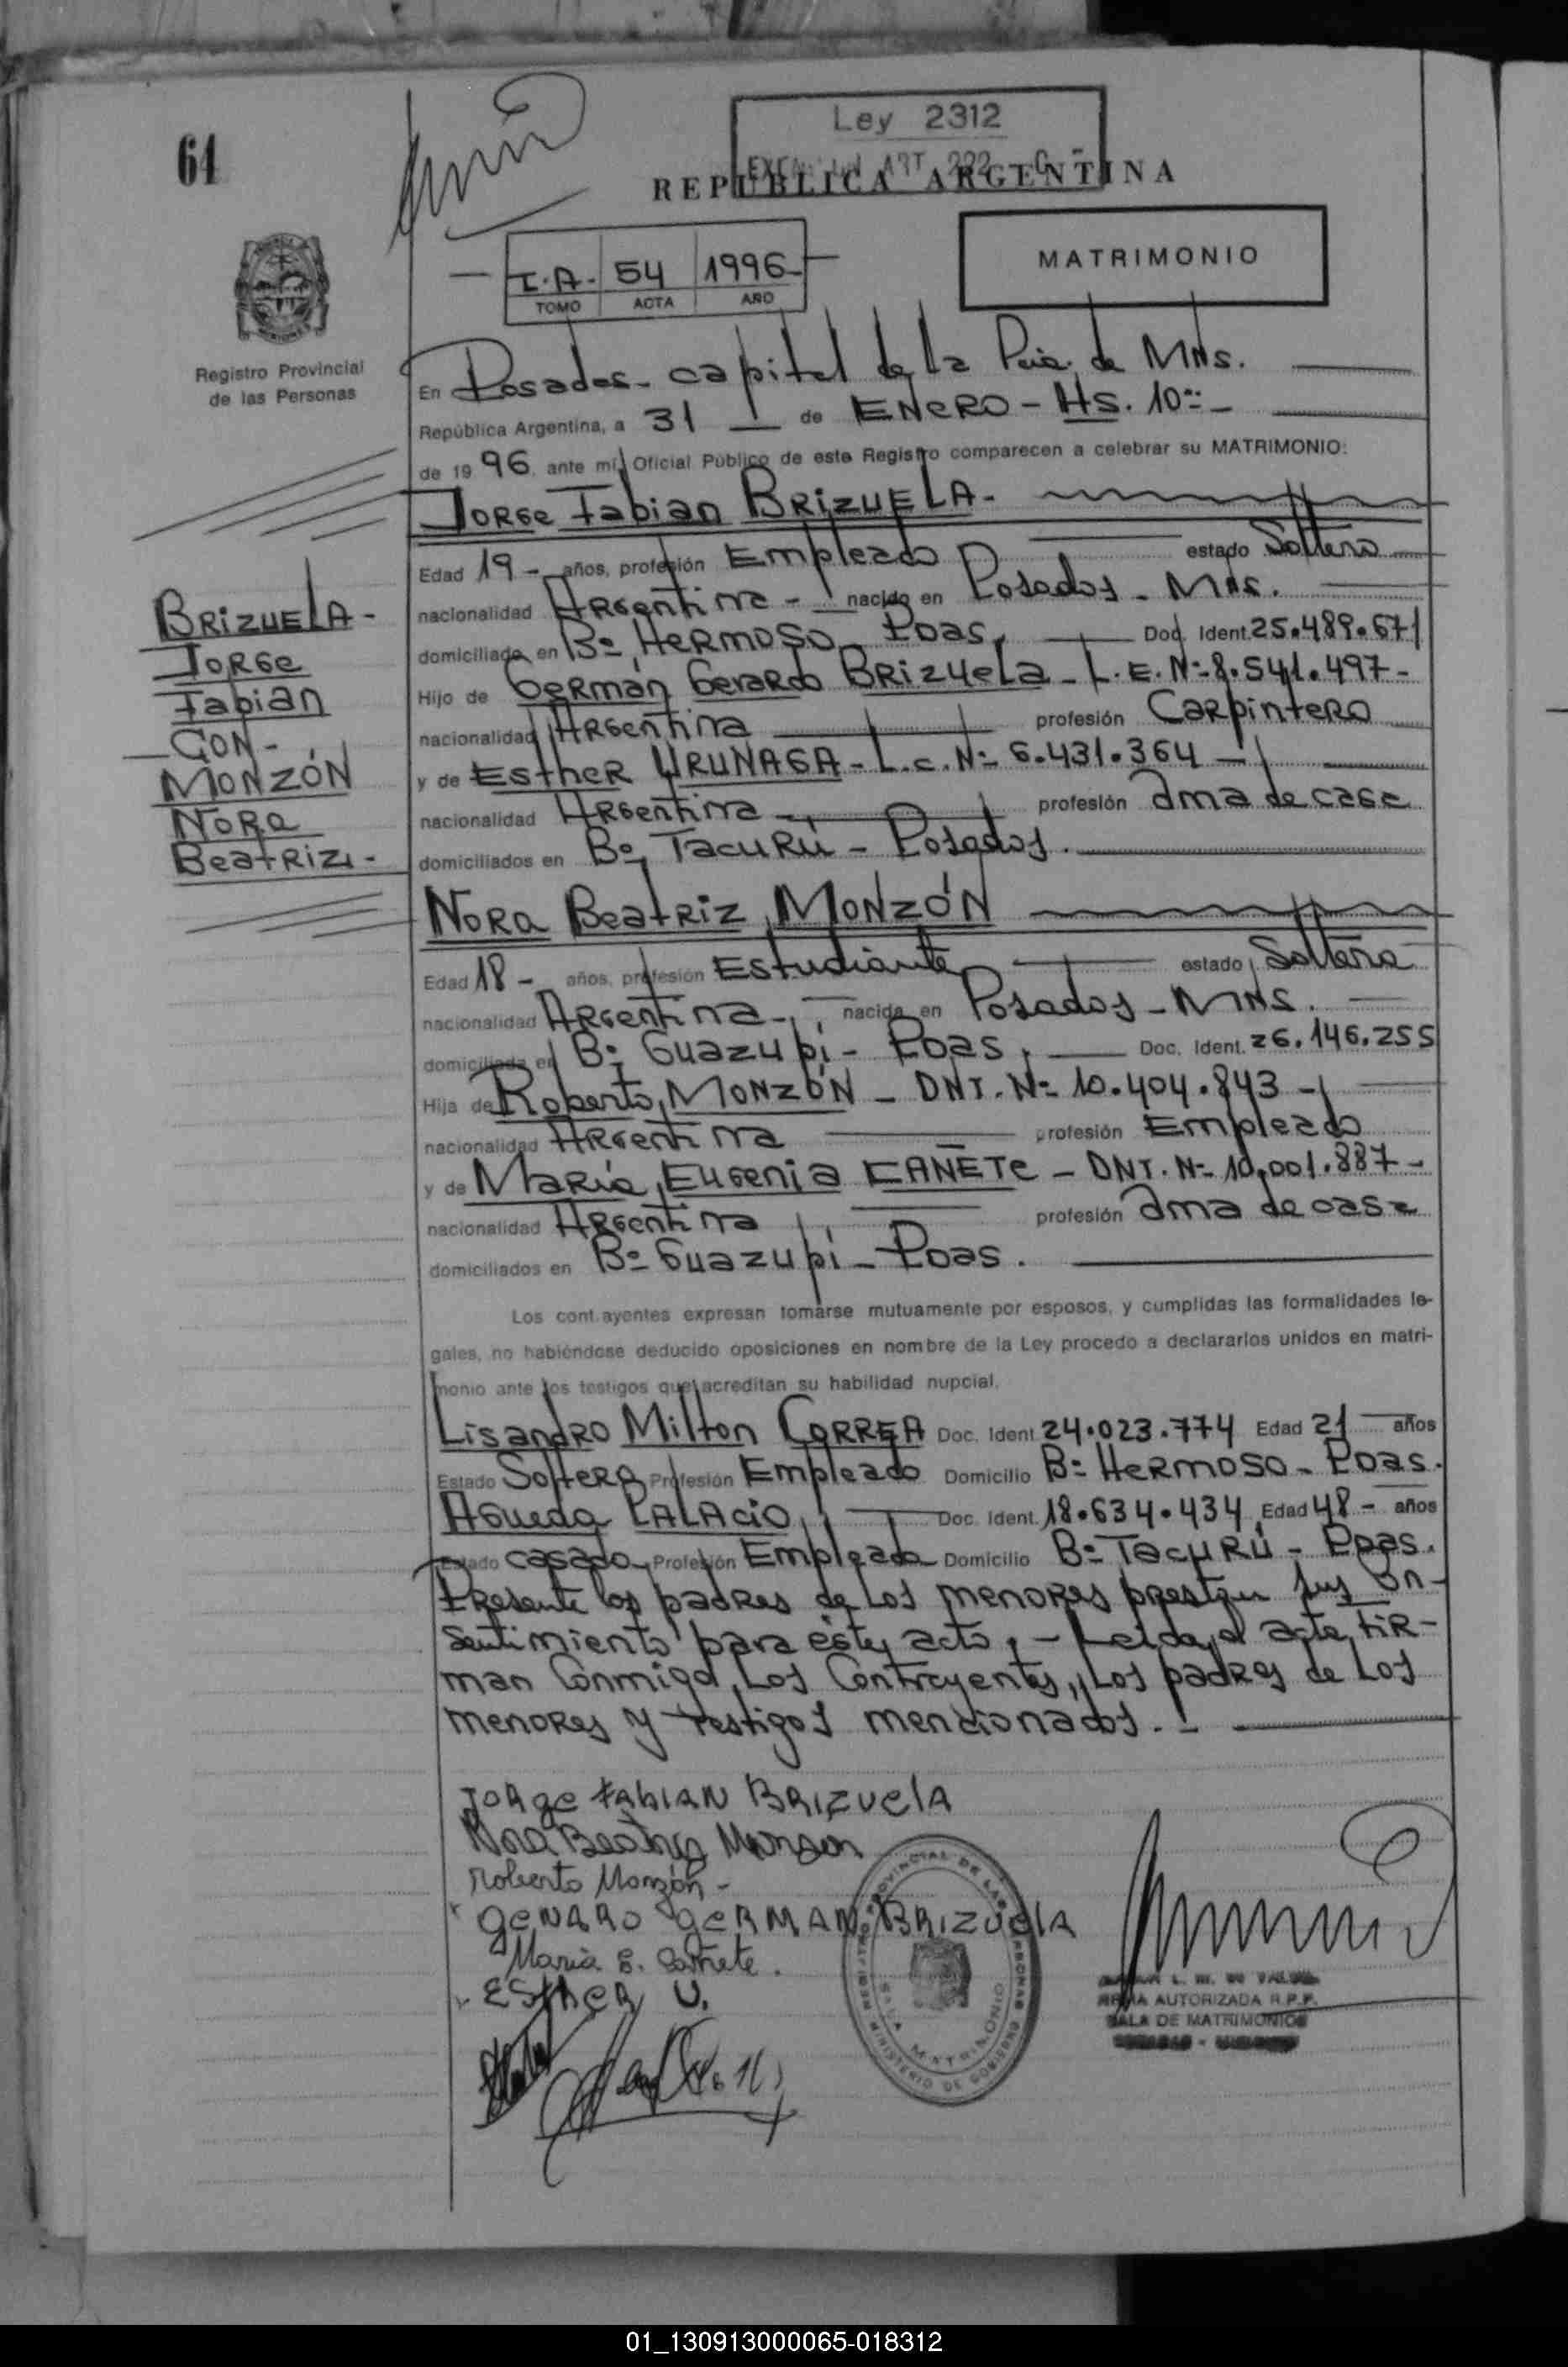 64
Ley 2312
REPUBLICA ARGENTINA
I.A. 54 1996
TOMO ACTA AÑO
MATRIMONIO
Registro Provincial
de las Personas
En Posadas - capital de la Pcia. de Mnes.
República Argentina, a 31 de ENERO - Hs. 10
de 1996. ante mí, Oficial Público de este Registro comparecen a celebrar su MATRIMONIO:
Jorge Fabian BRIZUELA -
Edad 19 - años, profesión Empleado estado Soltero
nacionalidad Argentina - nacido en Posadas - Mnes.
domiciliado en Bº HERMOSO Pdas. Doc. Ident. 25.489.671
Hijo de German Gerardo BRIZUELA - L.E. Nº 8.541.497 -
nacionalidad Argentina profesión Carpintero
y de Esther URUNAGA - L.C. Nº 6.431.364 -
nacionalidad Argentina - profesión ama de casa
domiciliados en Bº TACURÚ - Posadas.
BRIZUELA -
Jorge
Fabian
CON -
MONZÓN
Nora
Beatriz -
Nora Beatriz MONZÓN
Edad 18 - años, profesión Estudiante estado Soltera
nacionalidad Argentina - nacida en Posadas - Mnes.
domiciliada en Bº Guazupi - Pdas. Doc. Ident. 26.146.255
Hija de Roberto MONZÓN - DNI. Nº 10.404.843 -
nacionalidad Argentina profesión Empleado
y de María Eugenia CAÑETE - DNI. Nº 10.001.887 -
nacionalidad Argentina profesión ama de casa
domiciliados en Bº Guazupi - Pdas.
Los contrayentes expresan tomarse mutuamente por esposos, y cumplidas las formalidades le-
gales, no habiéndose deducido oposiciones en nombre de la Ley procedo a declararlos unidos en matri-
monio ante los testigos que acreditan su habilidad nupcial.
Lisandro Milton CORREA Doc. Ident. 24.023.774 Edad 21 años
Estado Soltero Profesión Empleado Domicilio Bº HERMOSO - Pdas.
Agueda PALACIO Doc. Ident. 18.634.434 Edad 48 - años
Estado casado Profesión Empleada Domicilio Bº TACURÚ - Pdas.
Presente los padres de los menores prestan sus con-
sentimiento para éste acto. - Leida el acta, fir-
man conmigo, los contrayentes, los padres de los
menores y testigos mencionados. -
Jorge Fabian Brizuela
Nora Beatriz Monzon
Roberto Monzón -
Genaro German Brizuela
Maria E. Cañete.
ESTHER U.
REGISTRO PROVINCIAL DE LAS PERSONAS
SALA MATRIMONIO
MINISTERIO DE GOBIERNO
FIRMA AUTORIZADA R.P.P.
SALA DE MATRIMONIOS
01_130913000065-018312